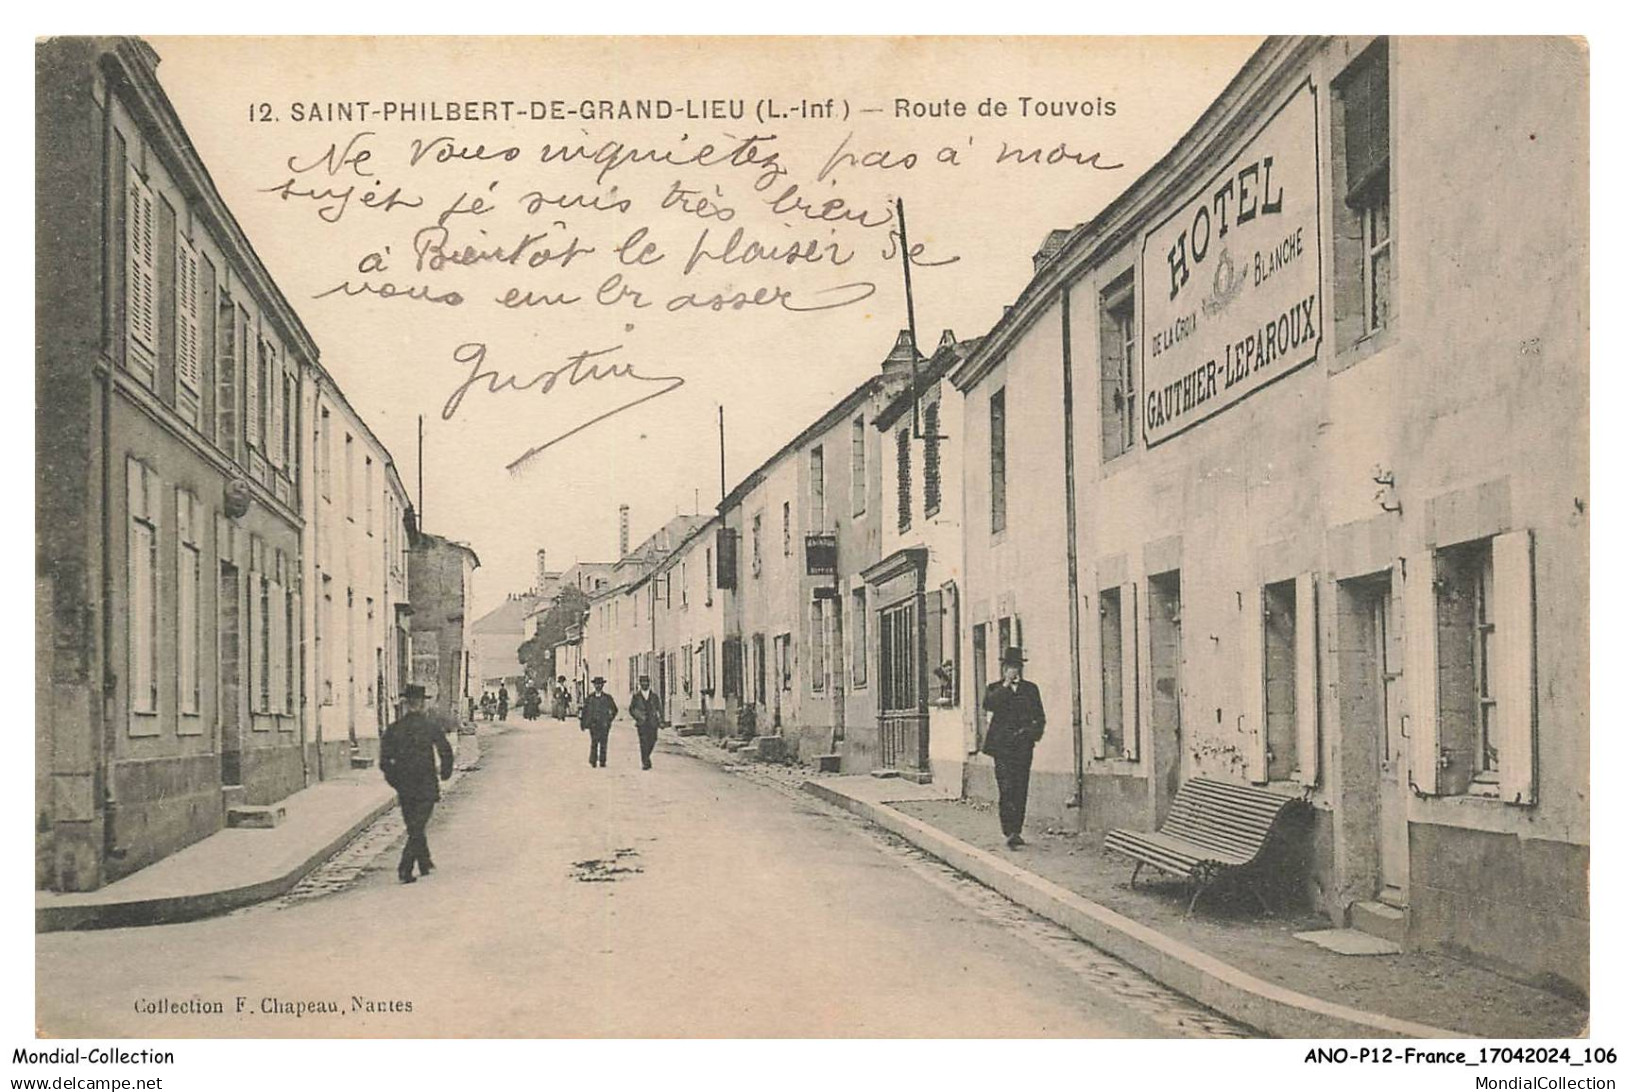 12. SAINT-PHILBERT-DE-GRAND-LIEU (L.-Inf.) — Route de Touvois
Ne vous inquiétez pas à mon
sujet jé suis très bien
à Bientôt le plaisir de
vous embrasser
Justin
HOTEL
DE LA CROIX BLANCHE
GAUTHIER-LEPAROUX
Collection F. Chapeau, Nantes
Mondial-Collection
ANO-P12-France_17042024_106
www.delcampe.net
MondialCollection